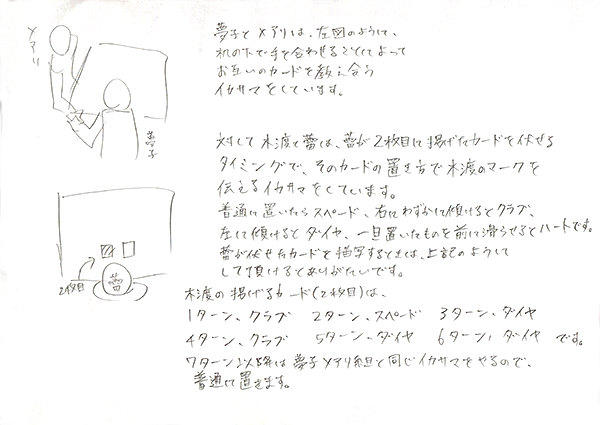 メアリ
夢子
夢子とメアリは、左図のように、
机の下で手を合わせることによって
お互いのカードを教え合う
イカサマをしています。
対して木渡と蕾は、蕾が2枚目に掲げたカードを伏せる
タイミングで、そのカードの置き方で木渡のマークを
伝えるイカサマをしています。
普通に置いたらスペード、右にわずかに傾けるとクラブ、
左に傾けるとダイヤ、一旦置いたものを前に滑らせるとハートです。
蕾が伏せたカードを描写するときは、上記のようして
して頂けるとありがたいです。
2枚目
蕾
木渡の掲げるカード(2枚目)は、
1ターン、クラブ 2ターン、スペード 3ターン、ダイヤ
4ターン、クラブ 5ターン、ダイヤ 6ターン、ダイヤ です。
7ターン以降は夢子メアリ組と同じイカサマをやるので、
普通に置きます。